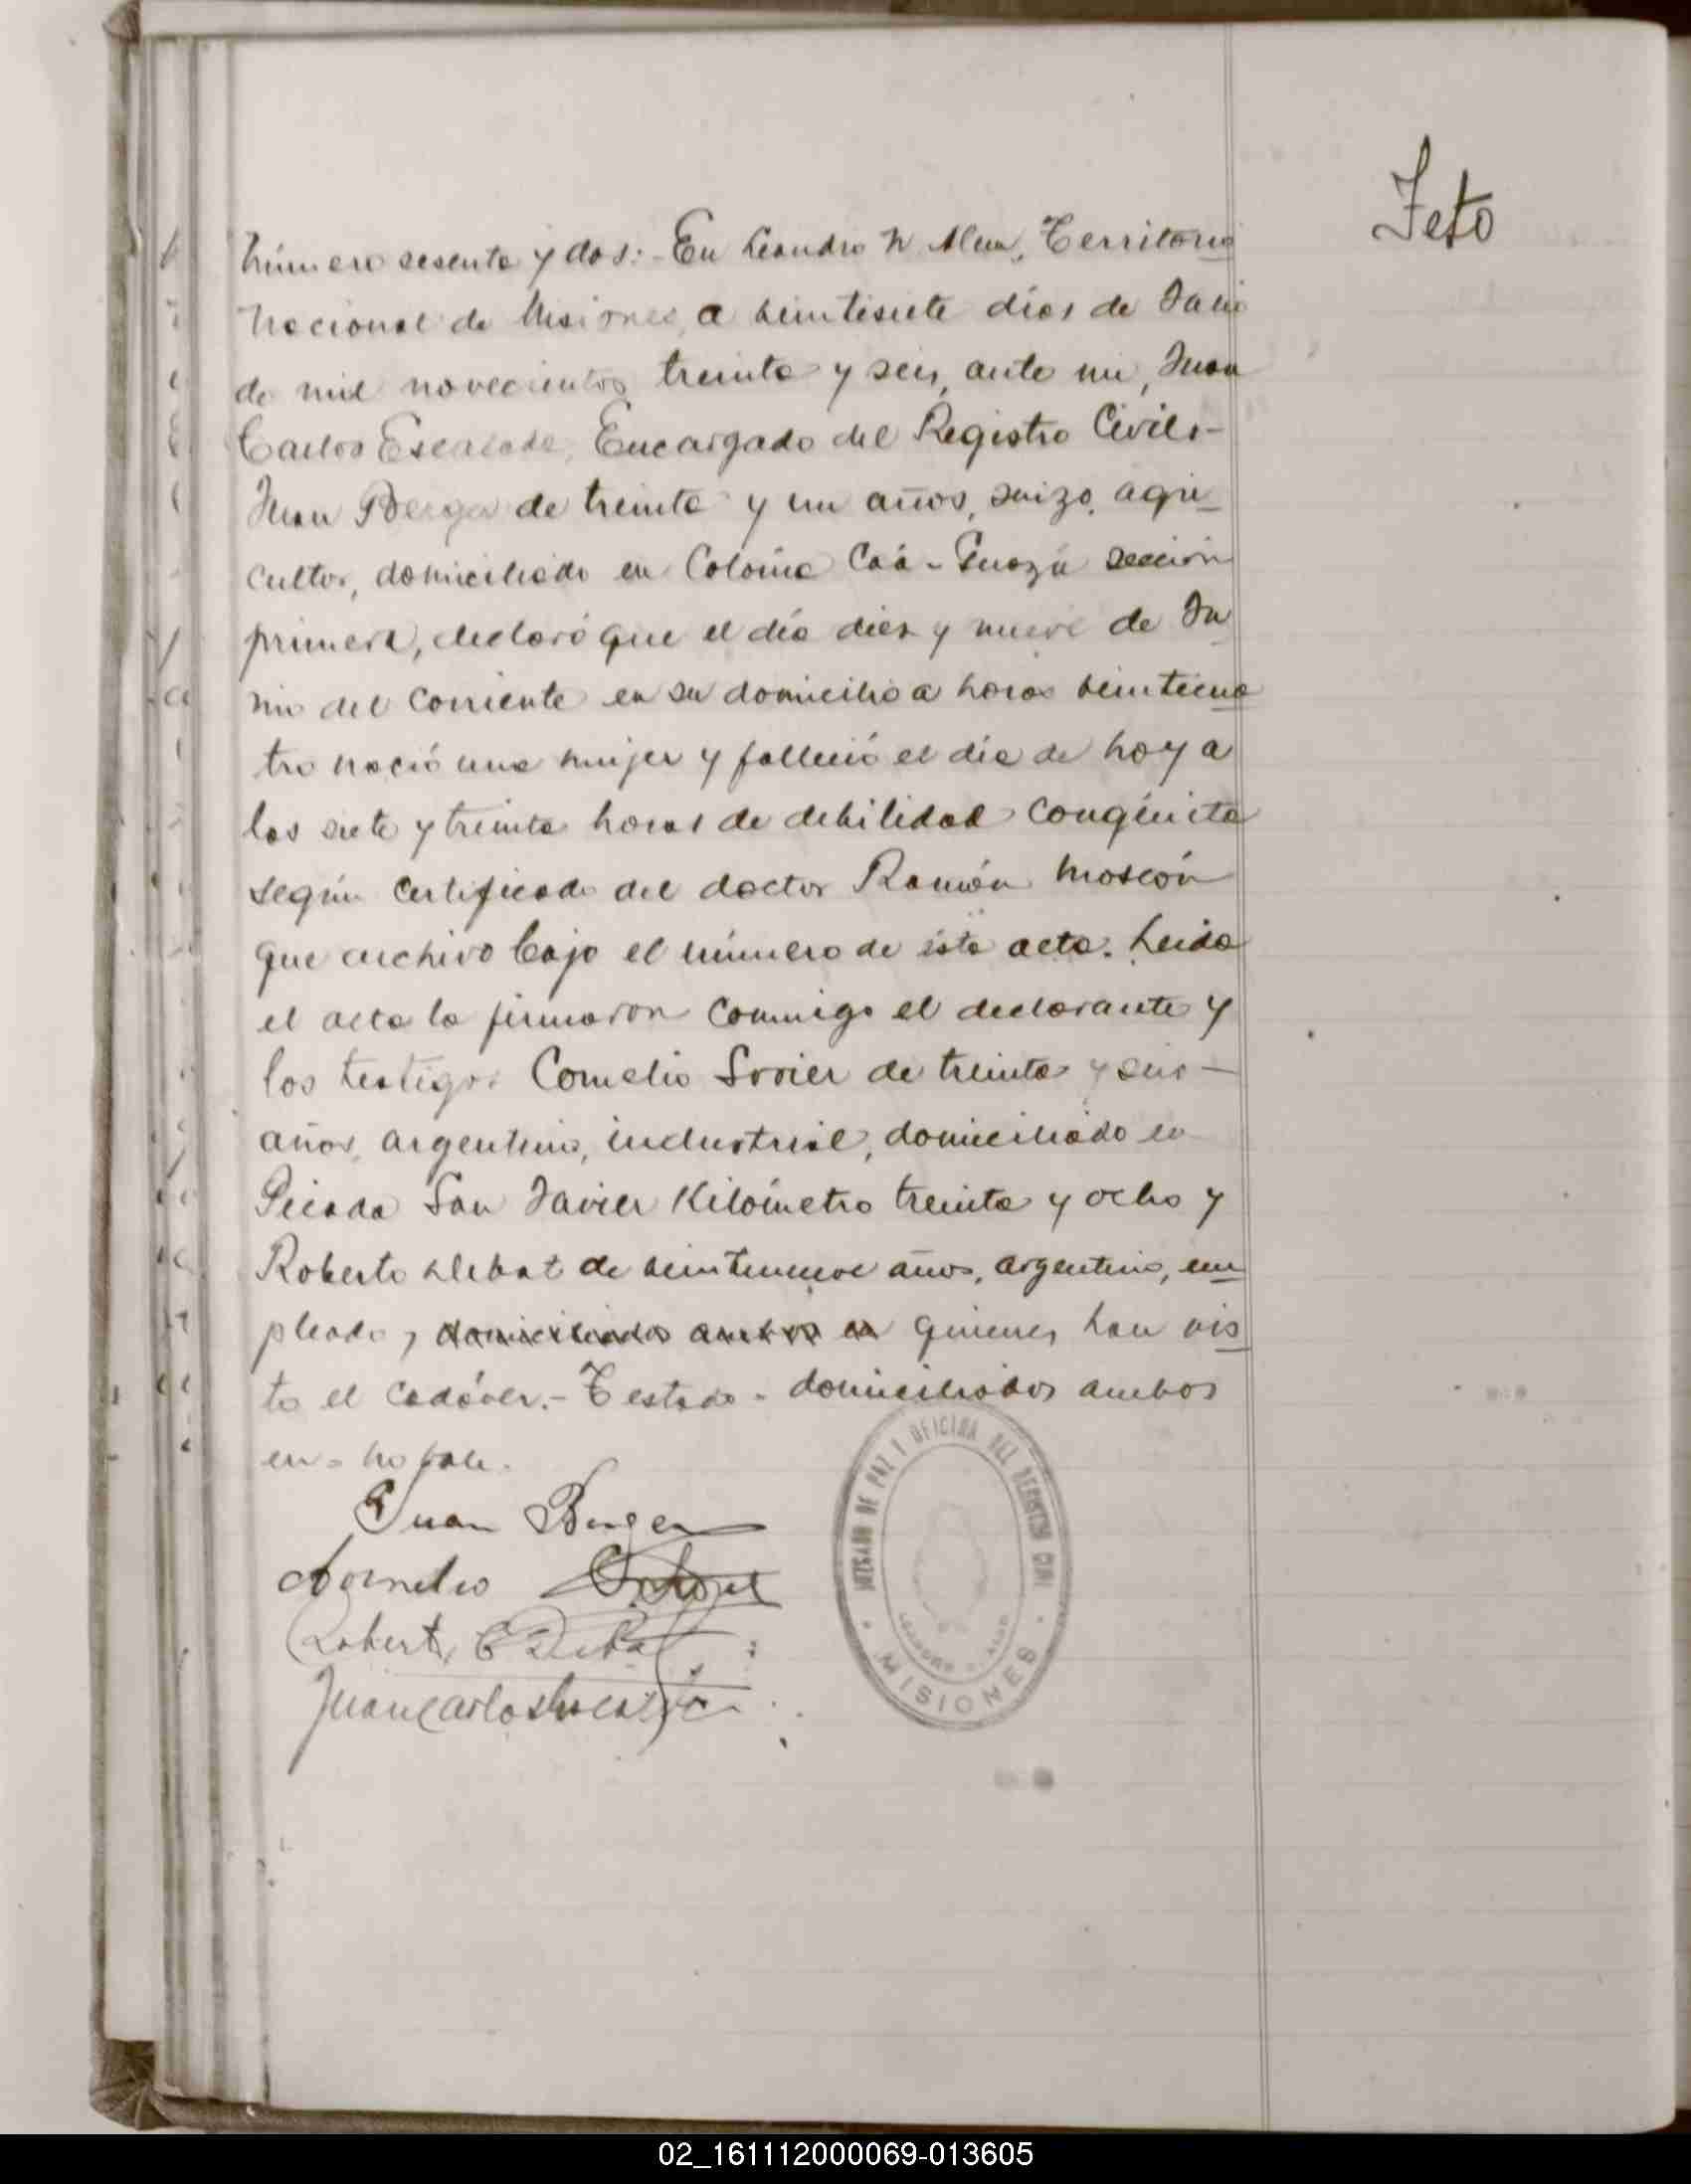 Feto
Número sesenta y dos:- En Leandro N Alem, Territorio
Nacional de Misiones, a beintisiete días de Junio
de mil novecientos treinta y seis, ante mi, Juan
Carlos Escalada, Encargado del Registro Civil,-
Juan Berger de treinta y un años, suizo, agri
cultor, domiciliado en Colonia Caá-Guazú sección
primera, declaró que el día diez y nueve de Ju
nio del corriente en su domicilio a horas beinticua
tro nació una mujer y falleció el día de hoy a
las siete y treinta horas de debilidad congénita
según certificado del doctor Ramón
que archivo bajo el número de ésta acta. Leida
el acta la firmaron conmigo el declarante y
los testigos Cornelio de treinta y seis -
años, argentino, industrial, domiciliado en
Picada San Javier Kilómetro treinta y ocho y
Roberto Debat de beintinueve años, argentino, em
pleado, domiciliados ambos en quienes han vis
to el cadáver.- Testado - domiciliados ambos
en - no vale.
Juan Berger
Cornelio
Roberto E Debat
Juan Carlos Escalada
JUZGADO DE PAZ I OFICINA DEL REGISTRO CIVIL
LEANDRO N. ALEM
MISIONES
02_161112000069-013605